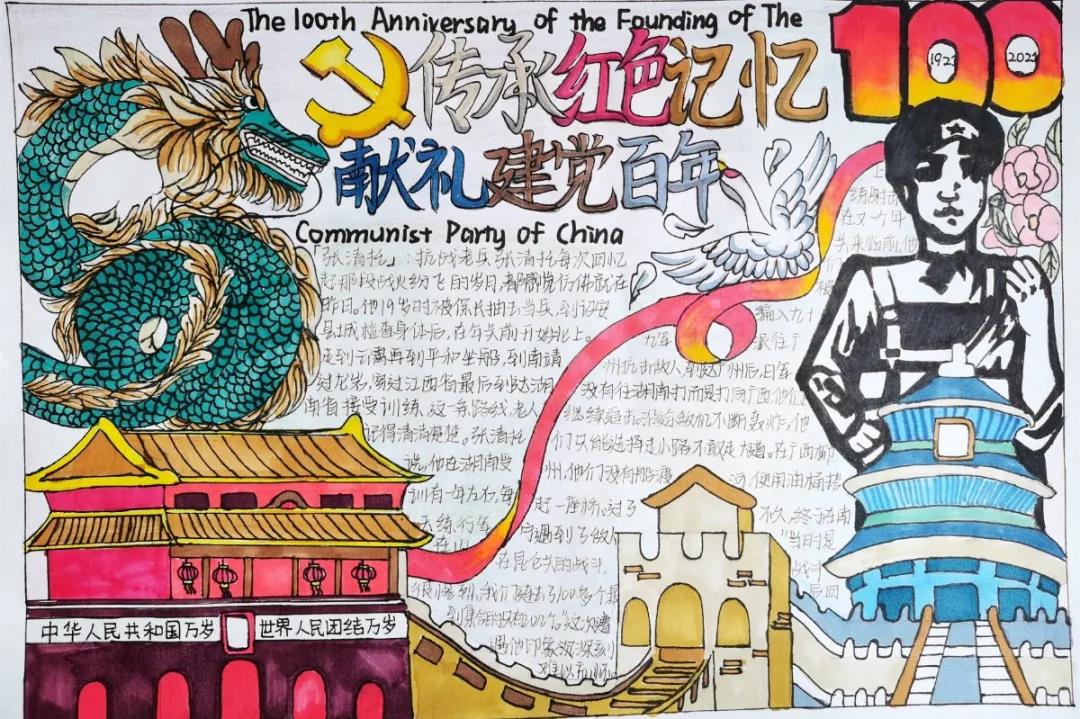 The 100th Anniversary of the Founding of The
100
1921
2021
传承红色记忆
献礼建党百年
Communist Party of China
「张清托」：抗战老兵张清托每次回忆
起那段战火纷飞的岁月，都感觉仿佛就在
昨日。他19岁时被保长抽去当兵，到诏安
县城检查身体后，在年关前开始北上。
走到云霄再到平和坐船，到南靖
过龙岩，穿过江西省最后到达湖
南省接受训练，这一条路线老人
记得清清楚楚。张清托
说，他在湖南受
训有一年左右，每
天练行军
上
练射击
在又一个年
关来临前，他
被
编入九十
九军 派往广
州抗击敌人，到达广州后，日军
没有往湖南打而是打向广西，他们
继续追击。沿途敌机不断轰炸，他
们只能选择走小路不敢走大道。在广西柳
州，他们没有船渡河，便用油桶搭
起一座桥。过了不久，终于在南
宁遇到了敌人
"当时是
在昆仑关的战斗，
很惨烈，我们
"这次遭
遇他印象
中华人民共和国万岁
世界人民团结万岁